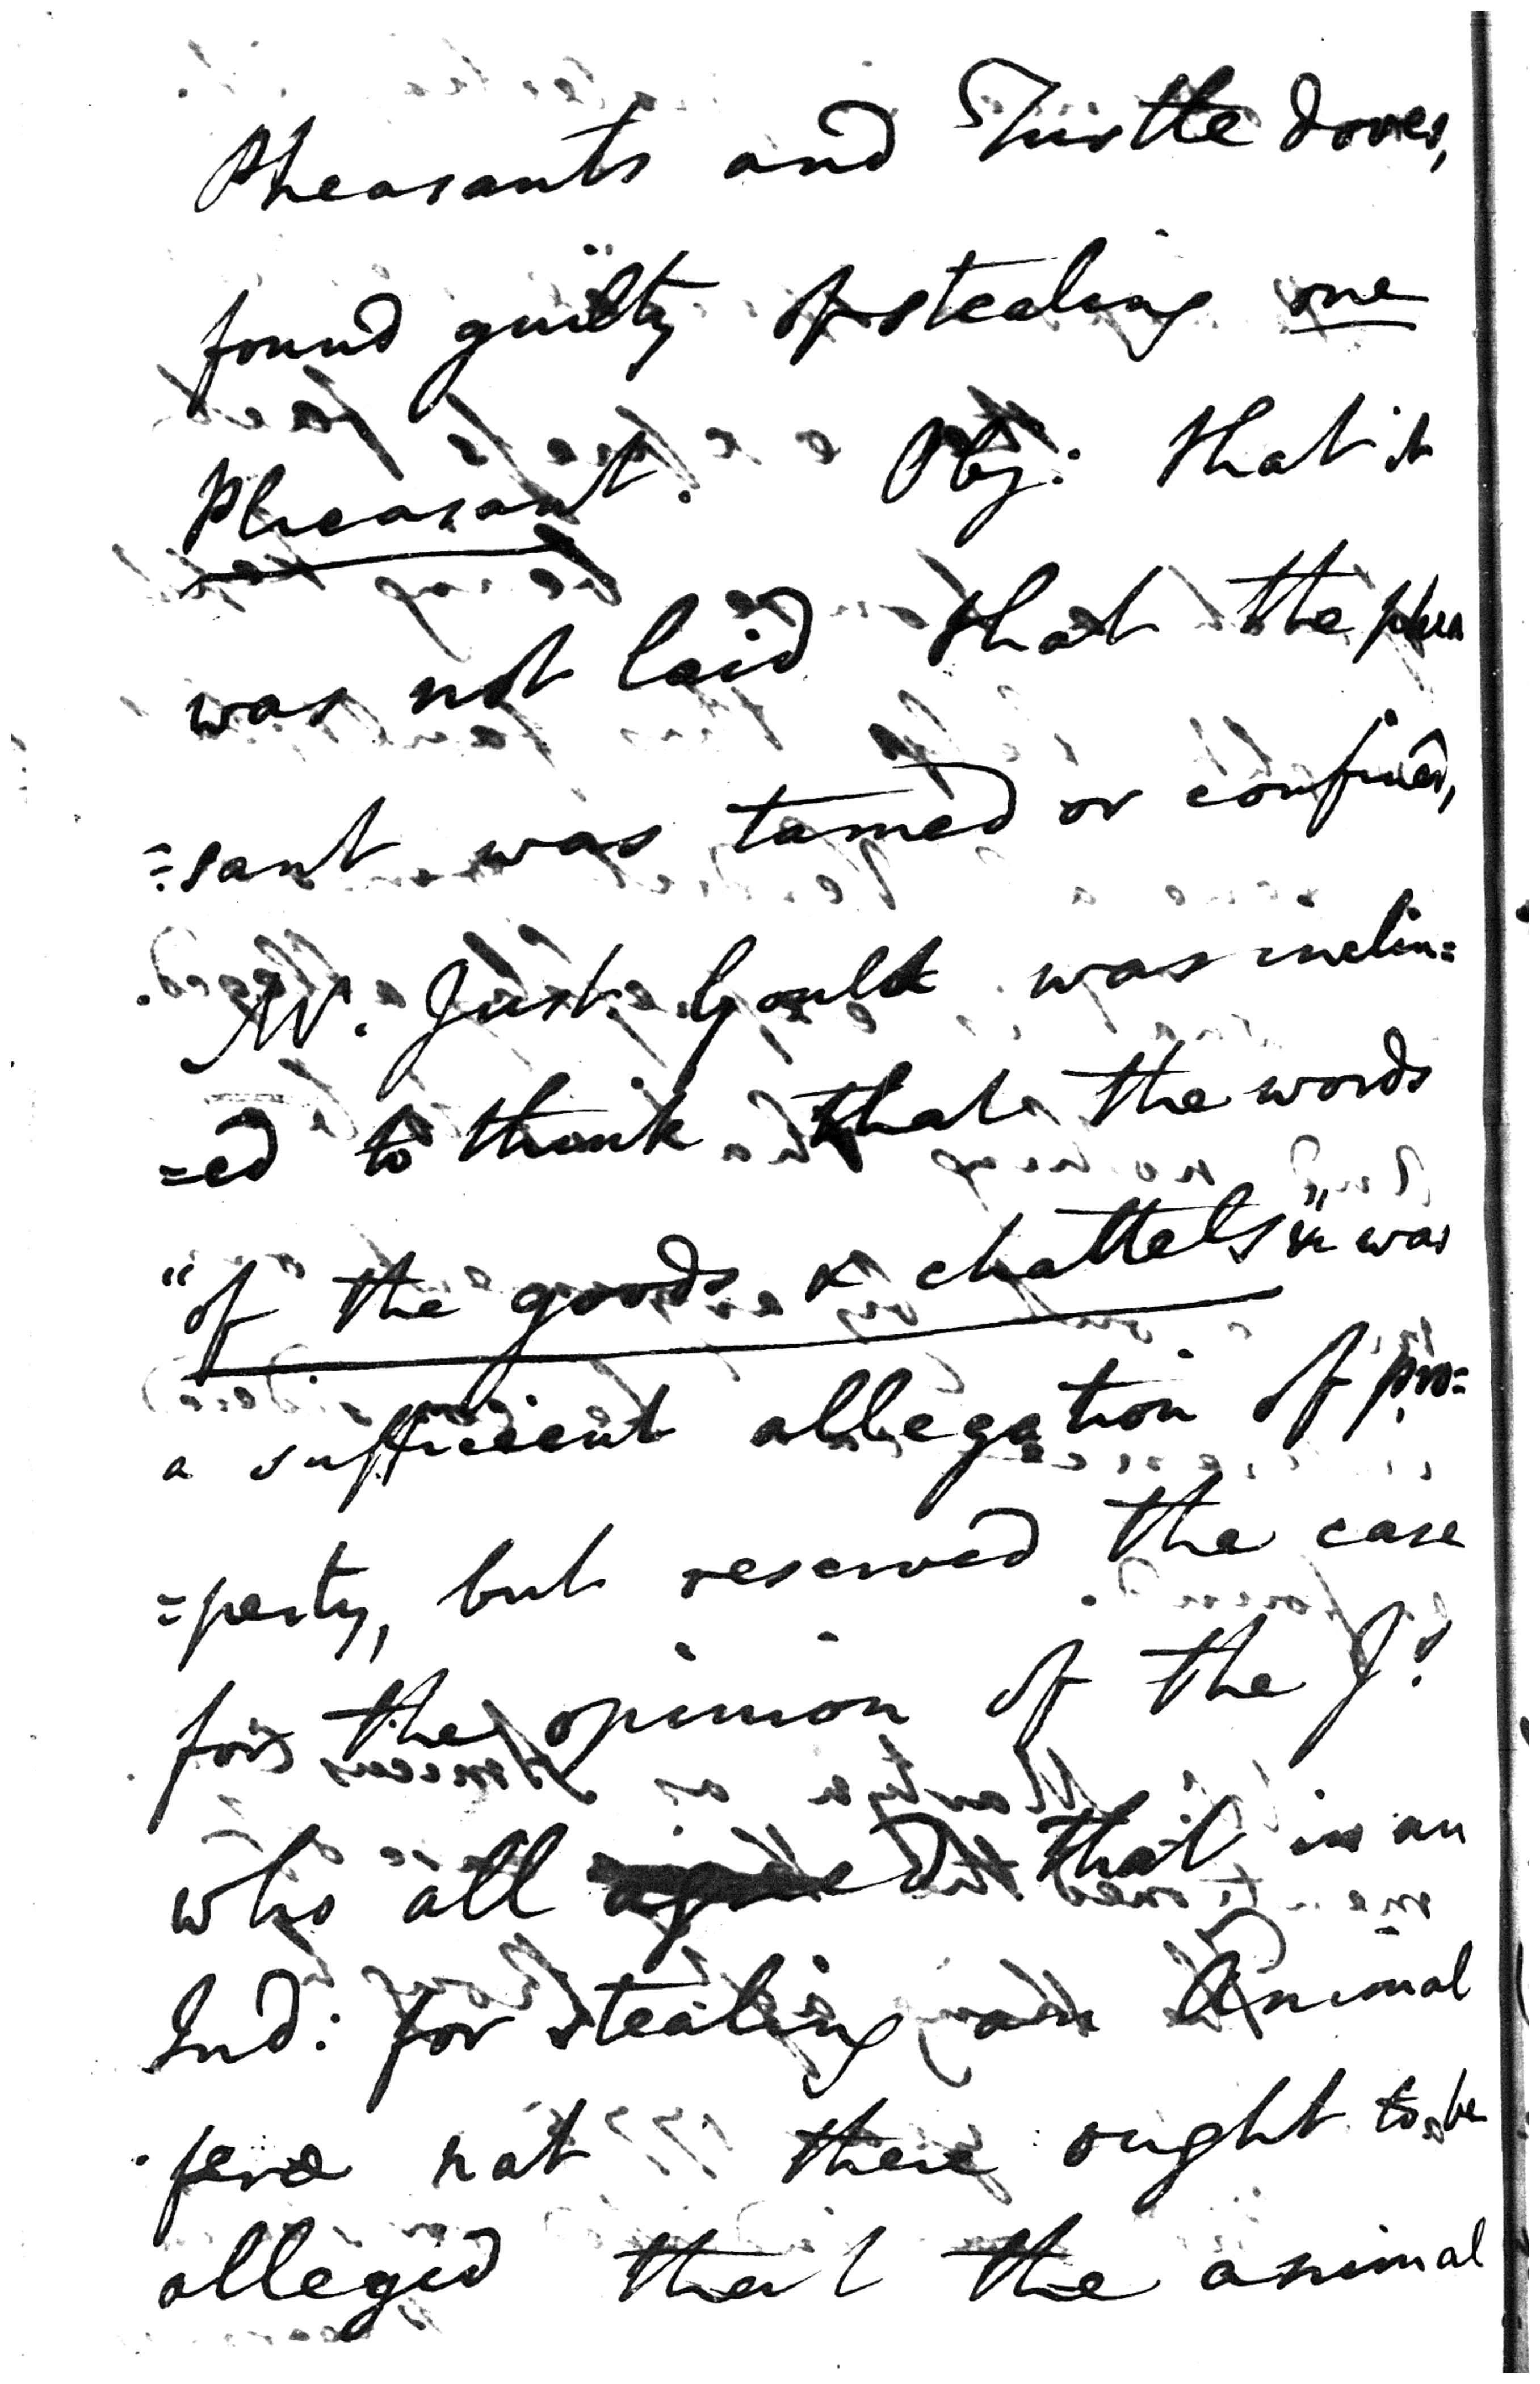 Pheasants and Turtle doves,
found guilty of stealing one
Pheasant. Obj: that it
was not laid that the phea
=sant was tamed or confined,
Mr. Just. Gould was inclin=
=ed to think that the words
"of the goods & chattels" &c was
a sufficient allegation of pro=
=perty, but reserved the case
for the opinion of the J.s
who all agreed that in an
Ind: for stealing an Animal
feræ nat there ought to be
alleged that the animal